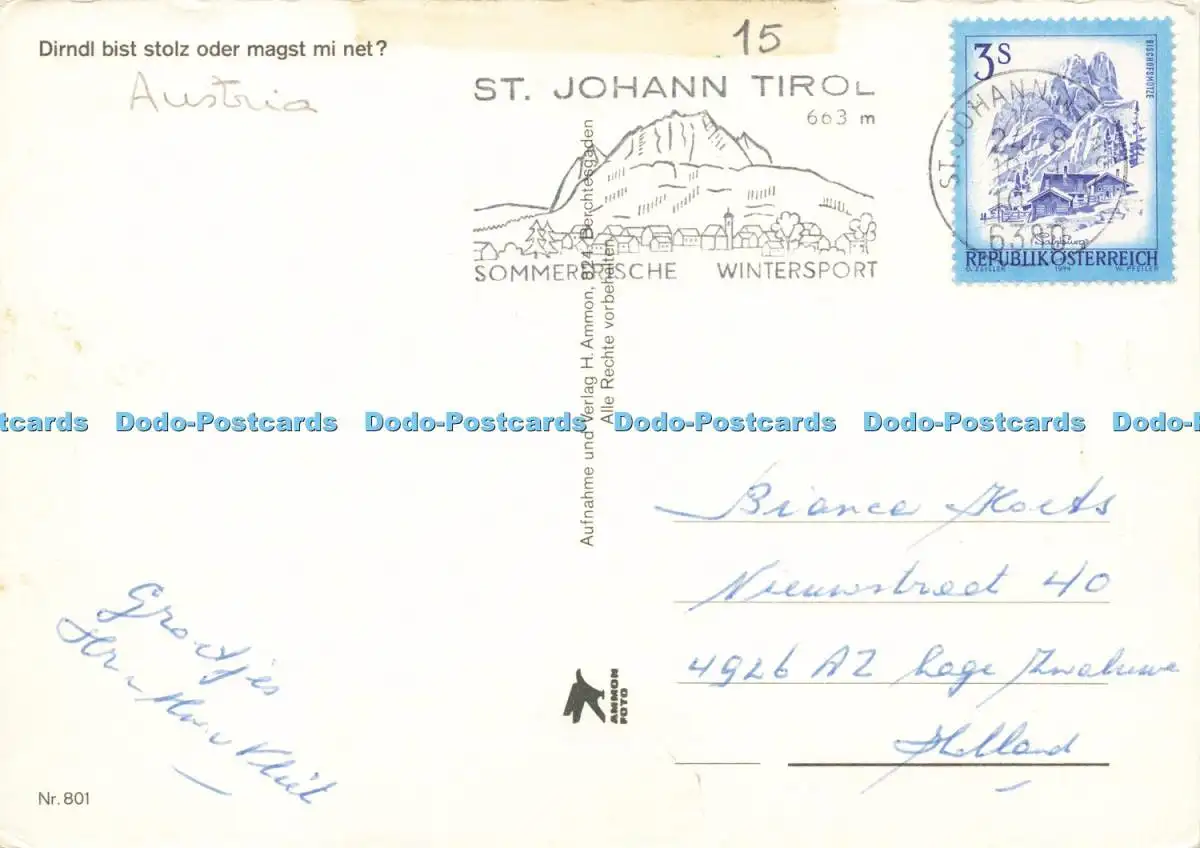 Dirndl bist stolz oder magst mi net?
Austria
15
ST. JOHANN TIROL
663 m
SOMMERFRISCHE WINTERSPORT
3 S
BISCHOFSMÜTZE
ST. JOHANN
24.-8
6380
Salzburg
REPUBLIK ÖSTERREICH
O. ZEILLER 1974 W. PFEILER
Aufnahme und Verlag H. Ammon, 824 Berchtesgaden
Alle Rechte vorbehalten
Dodo-Postcards Dodo-Postcards Dodo-Postcards Dodo-Postcards
Bianca
Nieuwstraat 40
4926 AZ Lage Zwaluwe
Holland
Groetjes
Vliet
AMMON
FOTO
Nr. 801